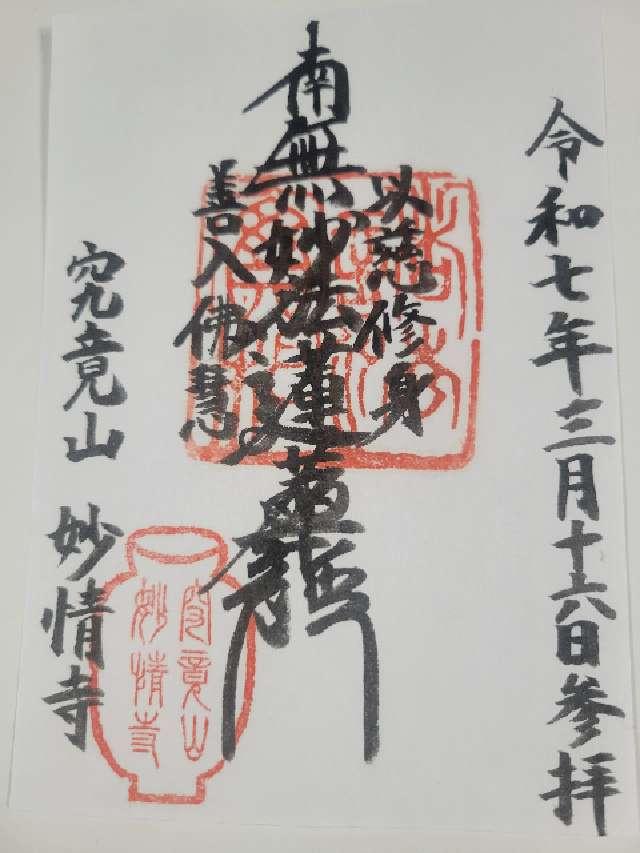 令和七年三月十六日参拝
以慈修身
南無妙法蓮華経
善入佛慧
究竟山 妙情寺
究竟山
妙情寺